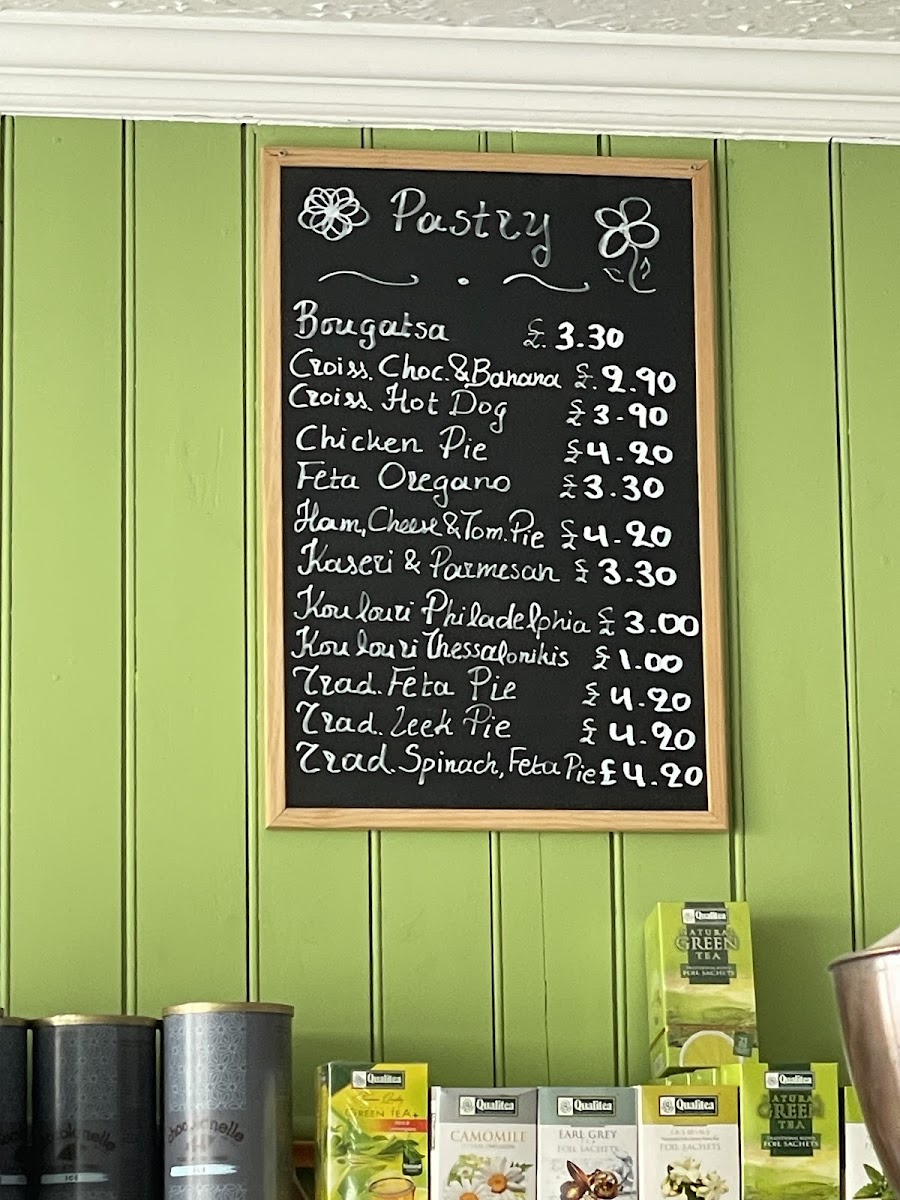 Pastry
Bougatsa £ 3.30
Croiss. Choc. & Banana £. 2.90
Croiss. Hot Dog £ 3-90
Chicken Pie £ 4.20
Feta Oregano £ 3.30
Ham, Cheese & Tom. Pie £ 4.20
Kaseri & Parmesan £ 3.30
Koulouri Philadelphia £ 3.00
Koulouri Thessalonikis £ 1.00
Trad. Feta Pie £ 4.20
Trad. Leek Pie £ 4.20
Trad. Spinach, Feta Pie £ 4.20
Qualitea
NATURAL
GREEN
TEA
FOIL SACHETS
Qualitea
GREEN TEA+
Qualitea
CAMOMILE
Qualitea
EARL GREY
TEA
FOIL SACHETS
Qualitea
FOIL SACHETS
Qualitea
NATURAL
GREEN
TEA
TRADITIONAL BLEND
FOIL SACHETS